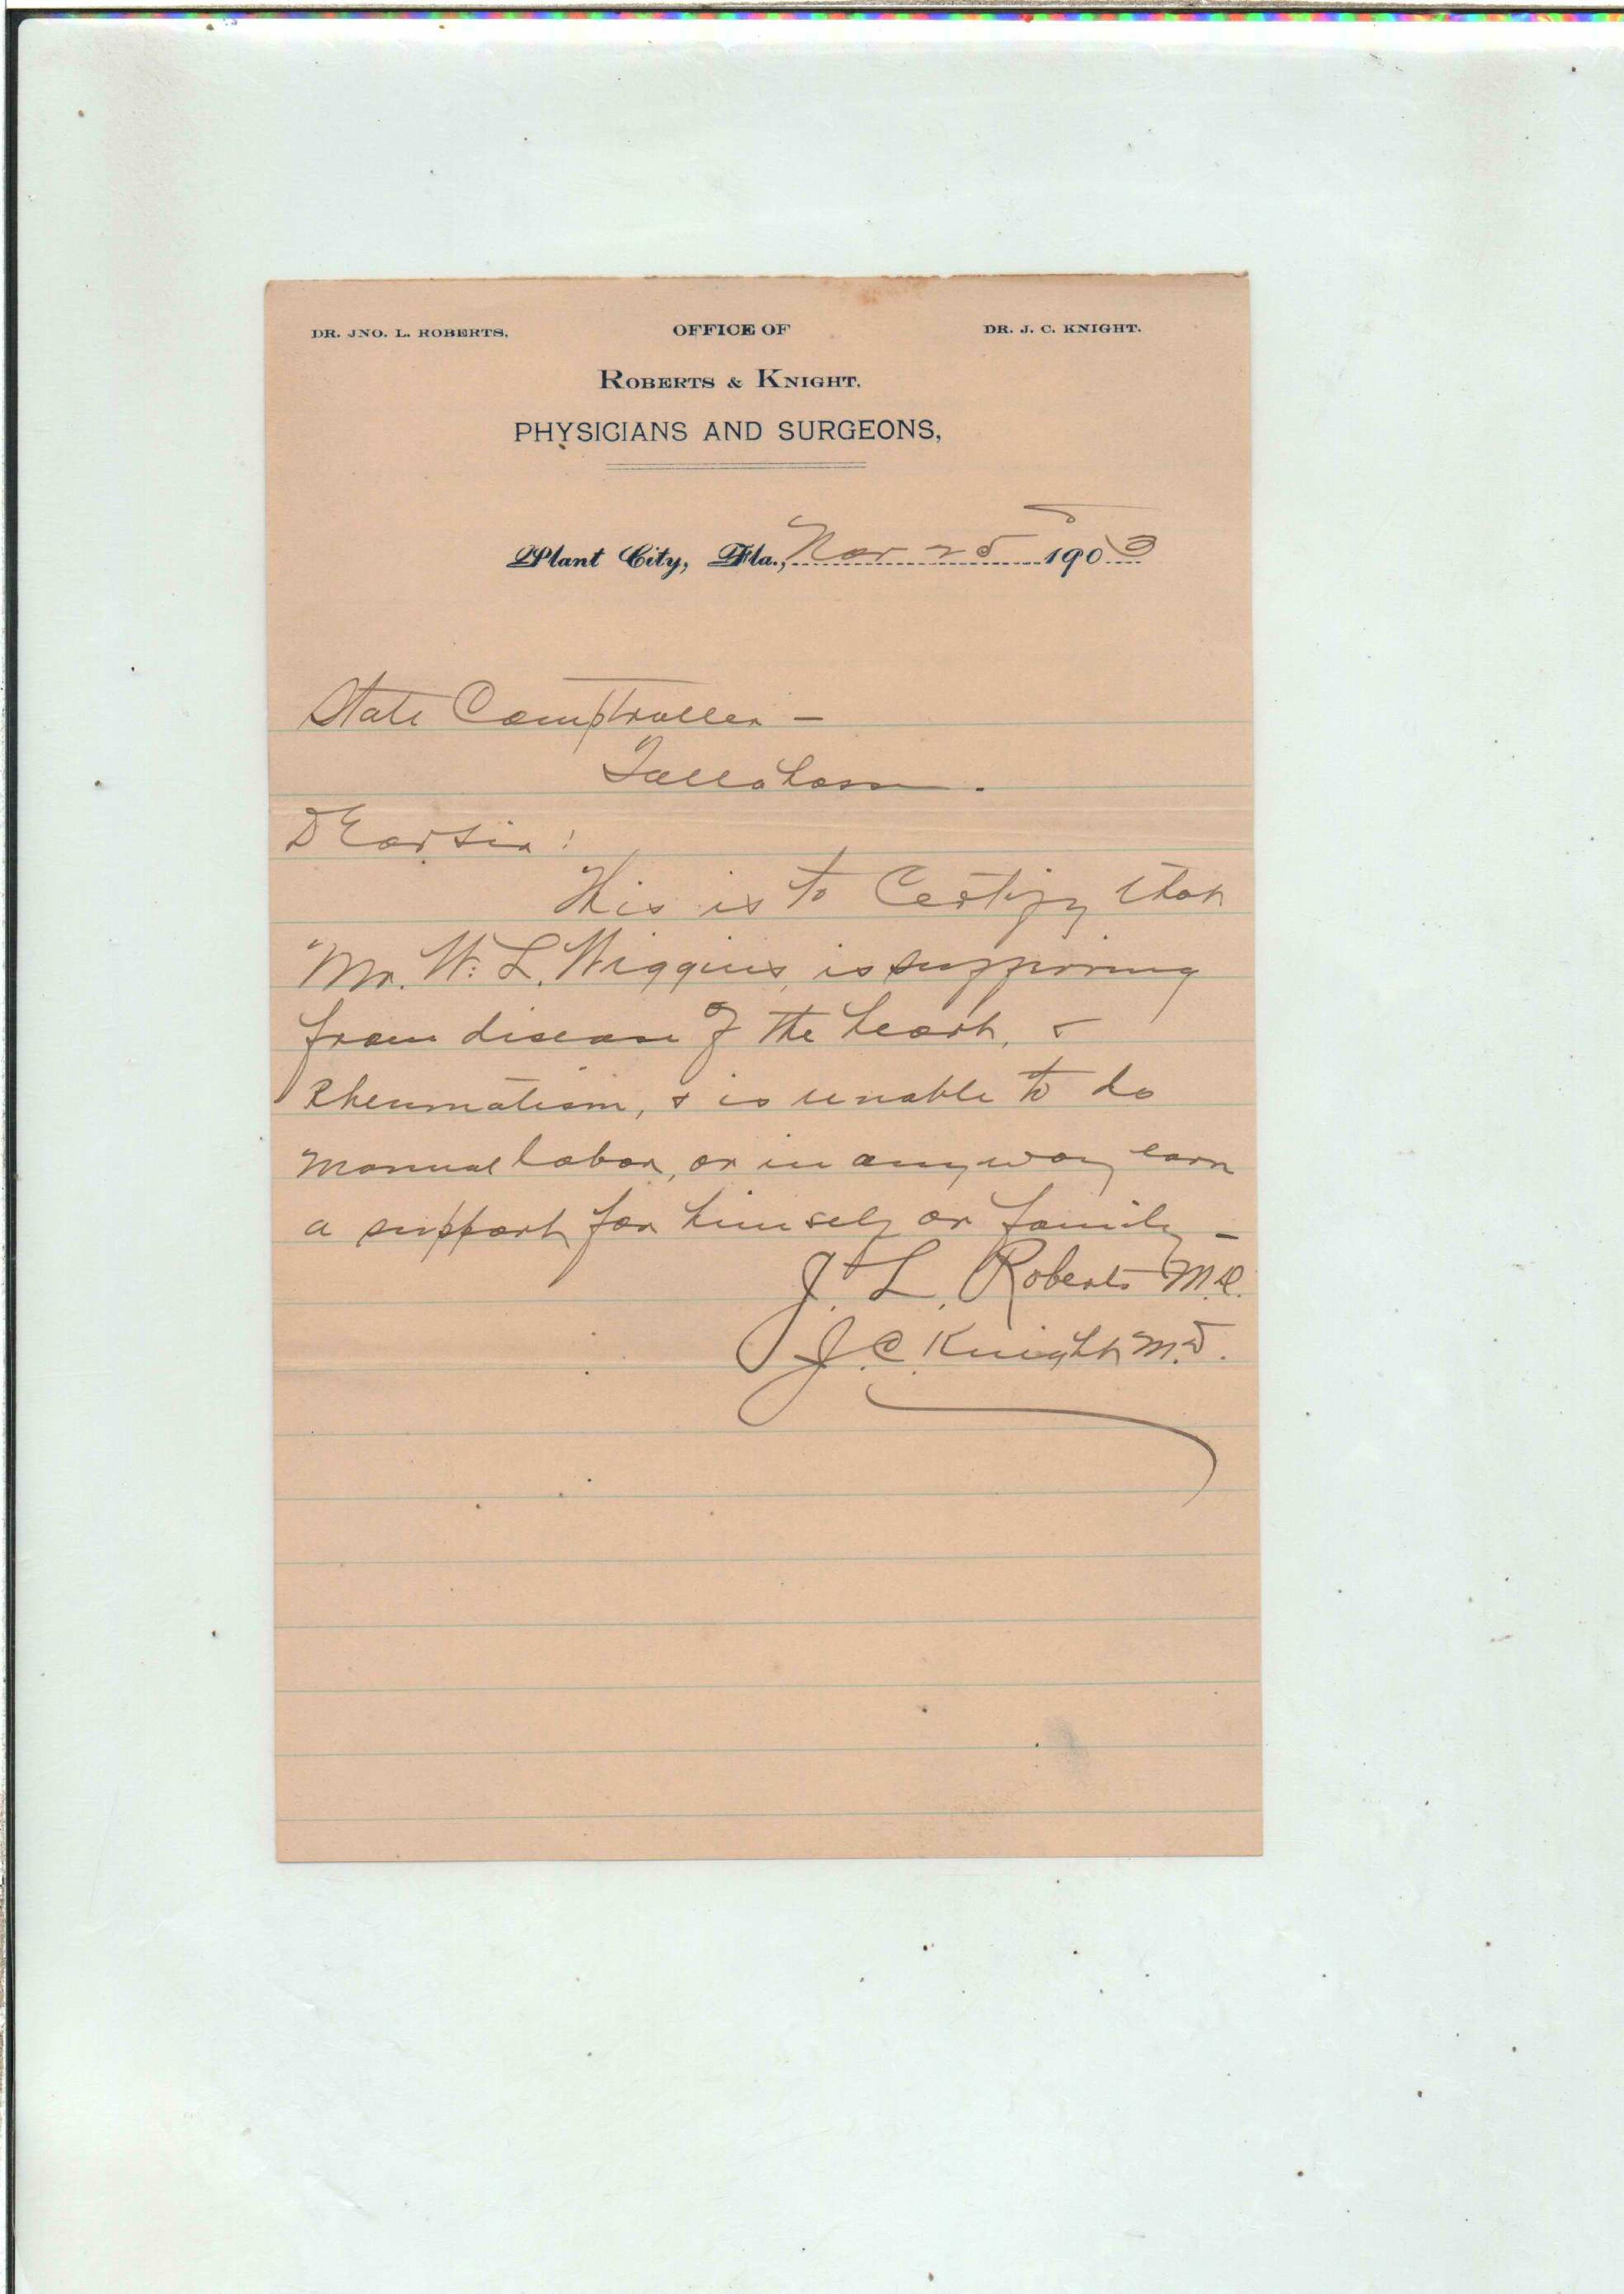 DR. JNO. L. ROBERTS. OFFICE OF DR. J. C. KNIGHT.
ROBERTS & KNIGHT.
PHYSICIANS AND SURGEONS,
Plant City, Fla., Nov 25 1903
State Comptroller –
Tallahassee.
Dear Sir:
This is to Certify that
Mr. W. L. Wiggins, is suffering
from disease of the heart, &
Rheumatism, & is unable to do
manual labor, or in any way earn
a support for himself or family –
J. L. Roberts M.D.
J. C. Knight M.D.